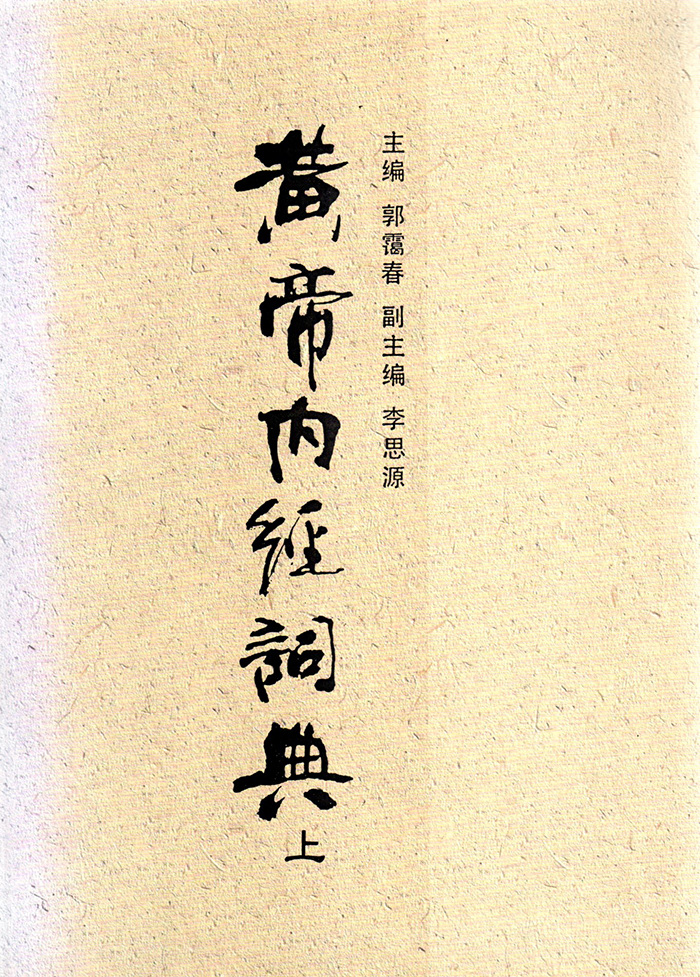 主编 郭霭春 副主编 李思源
黄帝内经詞典
上